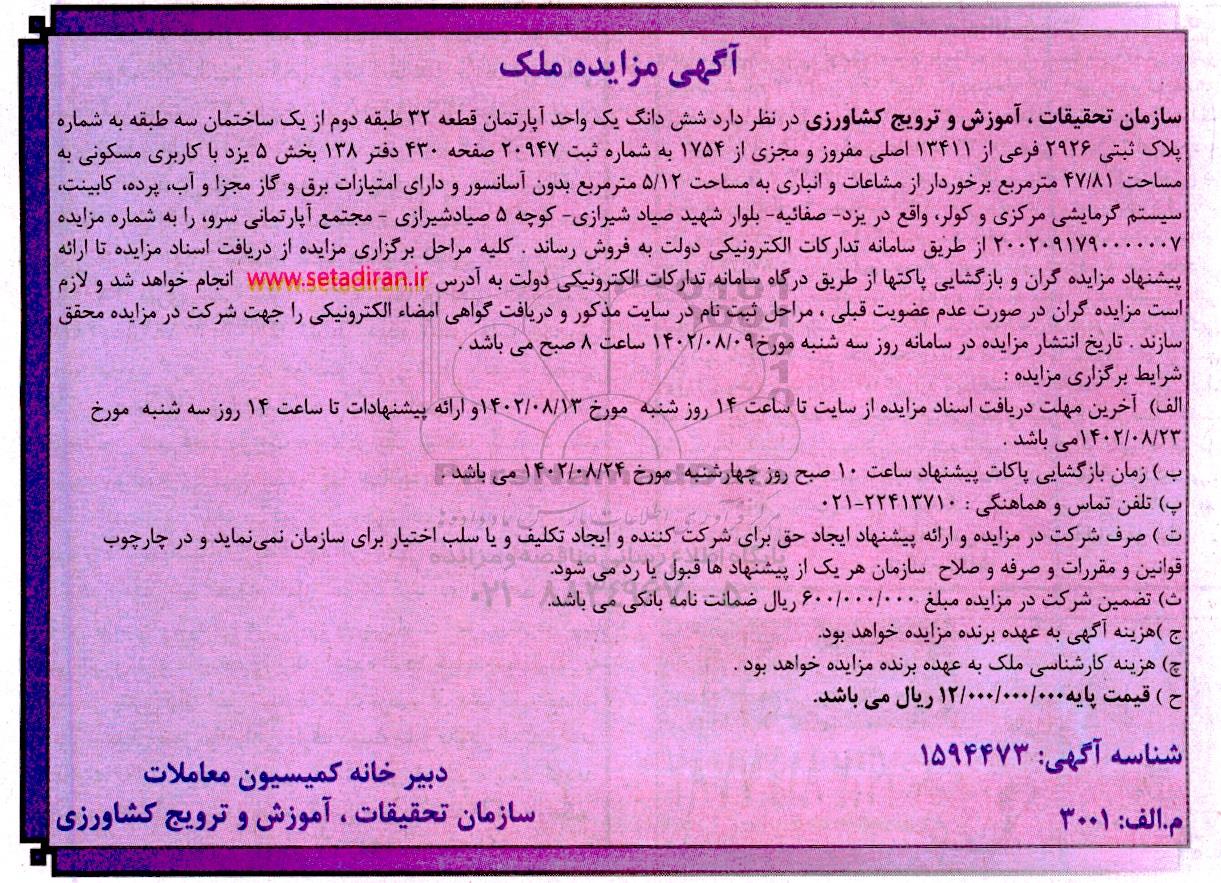 آگهی مزایده ملک
سازمان تحقیقات ، آموزش و ترویج کشاورزی در نظر دارد شش دانگ یک واحد آپارتمان قطعه ۳۲ طبقه دوم از یک ساختمان سه طبقه به شماره
پلاک ثبتی ۲۹۲۶ فرعی از ۱۳۴۱۱ اصلی مفروز و مجزی از ۱۷۵۴ به شماره ثبت ۲۰۹۴۷ صفحه ۴۳۰ دفتر ۱۳۸ بخش ۵ یزد با کاربری مسکونی به
مساحت ۴۷/۸۱ مترمربع برخوردار از مشاعات و انباری به مساحت ۵/۱۲ مترمربع بدون آسانسور و دارای امتیازات برق و گاز مجزا و آب، پرده، کابینت،
سیستم گرمایشی مرکزی و کولر، واقع در یزد- صفائیه- بلوار شهید صیاد شیرازی- کوچه ۵ صیادشیرازی - مجتمع آپارتمانی سرو، را به شماره مزایده
۲۰۰۲۰۹۱۷۹۰۰۰۰۰۰۷ از طریق سامانه تدارکات الکترونیکی دولت به فروش رساند . کلیه مراحل برگزاری مزایده از دریافت اسناد مزایده تا ارائه
پیشنهاد مزایده گران و بازگشایی پاکتها از طریق درگاه سامانه تدارکات الکترونیکی دولت به آدرس www.setadiran.ir انجام خواهد شد و لازم
است مزایده گران در صورت عدم عضویت قبلی ، مراحل ثبت نام در سایت مذکور و دریافت گواهی امضاء الکترونیکی را جهت شرکت در مزایده محقق
سازند . تاریخ انتشار مزایده در سامانه روز سه شنبه مورخ۱۴۰۲/۰۸/۰۹ ساعت ۸ صبح می باشد .
شرایط برگزاری مزایده :
الف) آخرین مهلت دریافت اسناد مزایده از سایت تا ساعت ۱۴ روز شنبه مورخ ۱۴۰۲/۰۸/۱۳و ارائه پیشنهادات تا ساعت ۱۴ روز سه شنبه مورخ
۱۴۰۲/۰۸/۲۳می باشد .
ب) زمان بازگشایی پاکات پیشنهاد ساعت ۱۰ صبح روز چهارشنبه مورخ ۱۴۰۲/۰۸/۲۴ می باشد .
پ) تلفن تماس و هماهنگی : ۲۲۴۱۳۷۱۰-۰۲۱
ت ) صرف شرکت در مزایده و ارائه پیشنهاد ایجاد حق برای شرکت کننده و ایجاد تکلیف و یا سلب اختیار برای سازمان نمی‌نماید و در چارچوب
قوانین و مقررات و صرفه و صلاح سازمان هر یک از پیشنهاد ها قبول یا رد می شود.
ث) تضمین شرکت در مزایده مبلغ ۶۰۰/۰۰۰/۰۰۰ ریال ضمانت نامه بانکی می باشد.
ج )هزینه آگهی به عهده برنده مزایده خواهد بود.
چ) هزینه کارشناسی ملک به عهده برنده مزایده خواهد بود .
ح ) قیمت پایه۱۲/۰۰۰/۰۰۰/۰۰۰ ریال می باشد.
شناسه آگهی: ۱۵۹۴۴۷۳
م.الف: ۳۰۰۱
دبیر خانه کمیسیون معاملات
سازمان تحقیقات ، آموزش و ترویج کشاورزی